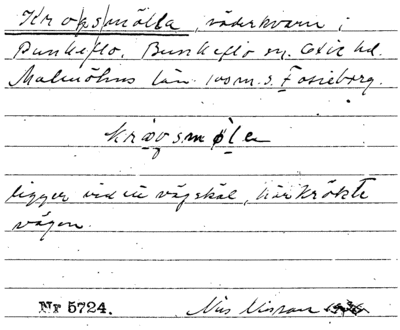 Kro/ps/mölla, väderkvarn i
Bunkeflo, Bunkeflo sn. Oxie hd.
Malmöhus län. 100 m. s. Fosieborg.
krǫvsmølen
ligger vid ett vägskäl, här krökte
vägen.
Nr 5724. Nils Nilsson